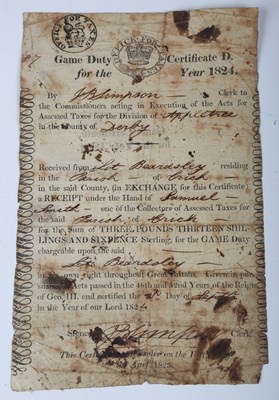 OFFICE FOR TAXES
OFFICE FOR TAXES
Game Duty Certificate D.
for the Year 1824.
By J B Simpson Clerk to
the Commissioners acting in Execution of the Acts for
Assessed Taxes for the Division of Appletree
in the County of Derby
Received from Beardsley residing
in the Parish of Crich
in the said County, (in EXCHANGE for this Certificate)
a RECEIPT under the Hand of Samuel
Smith one of the Collectors of Assessed Taxes for
the said Parish of Crich
for the Sum of THREE POUNDS THIRTEEN SHIL-
LINGS AND SIXPENCE Sterling, for the GAME Duty
chargeable upon the said
Beardsley
own right throughout Great Britain. Given in pur-
Acts passed in the 48th and 52nd Years of the Reign
of Geo. III. and certified the Day of
in the Year of our Lord 1824
Signed Simpson Clerk.
This Certificate expires on the
April 1825.